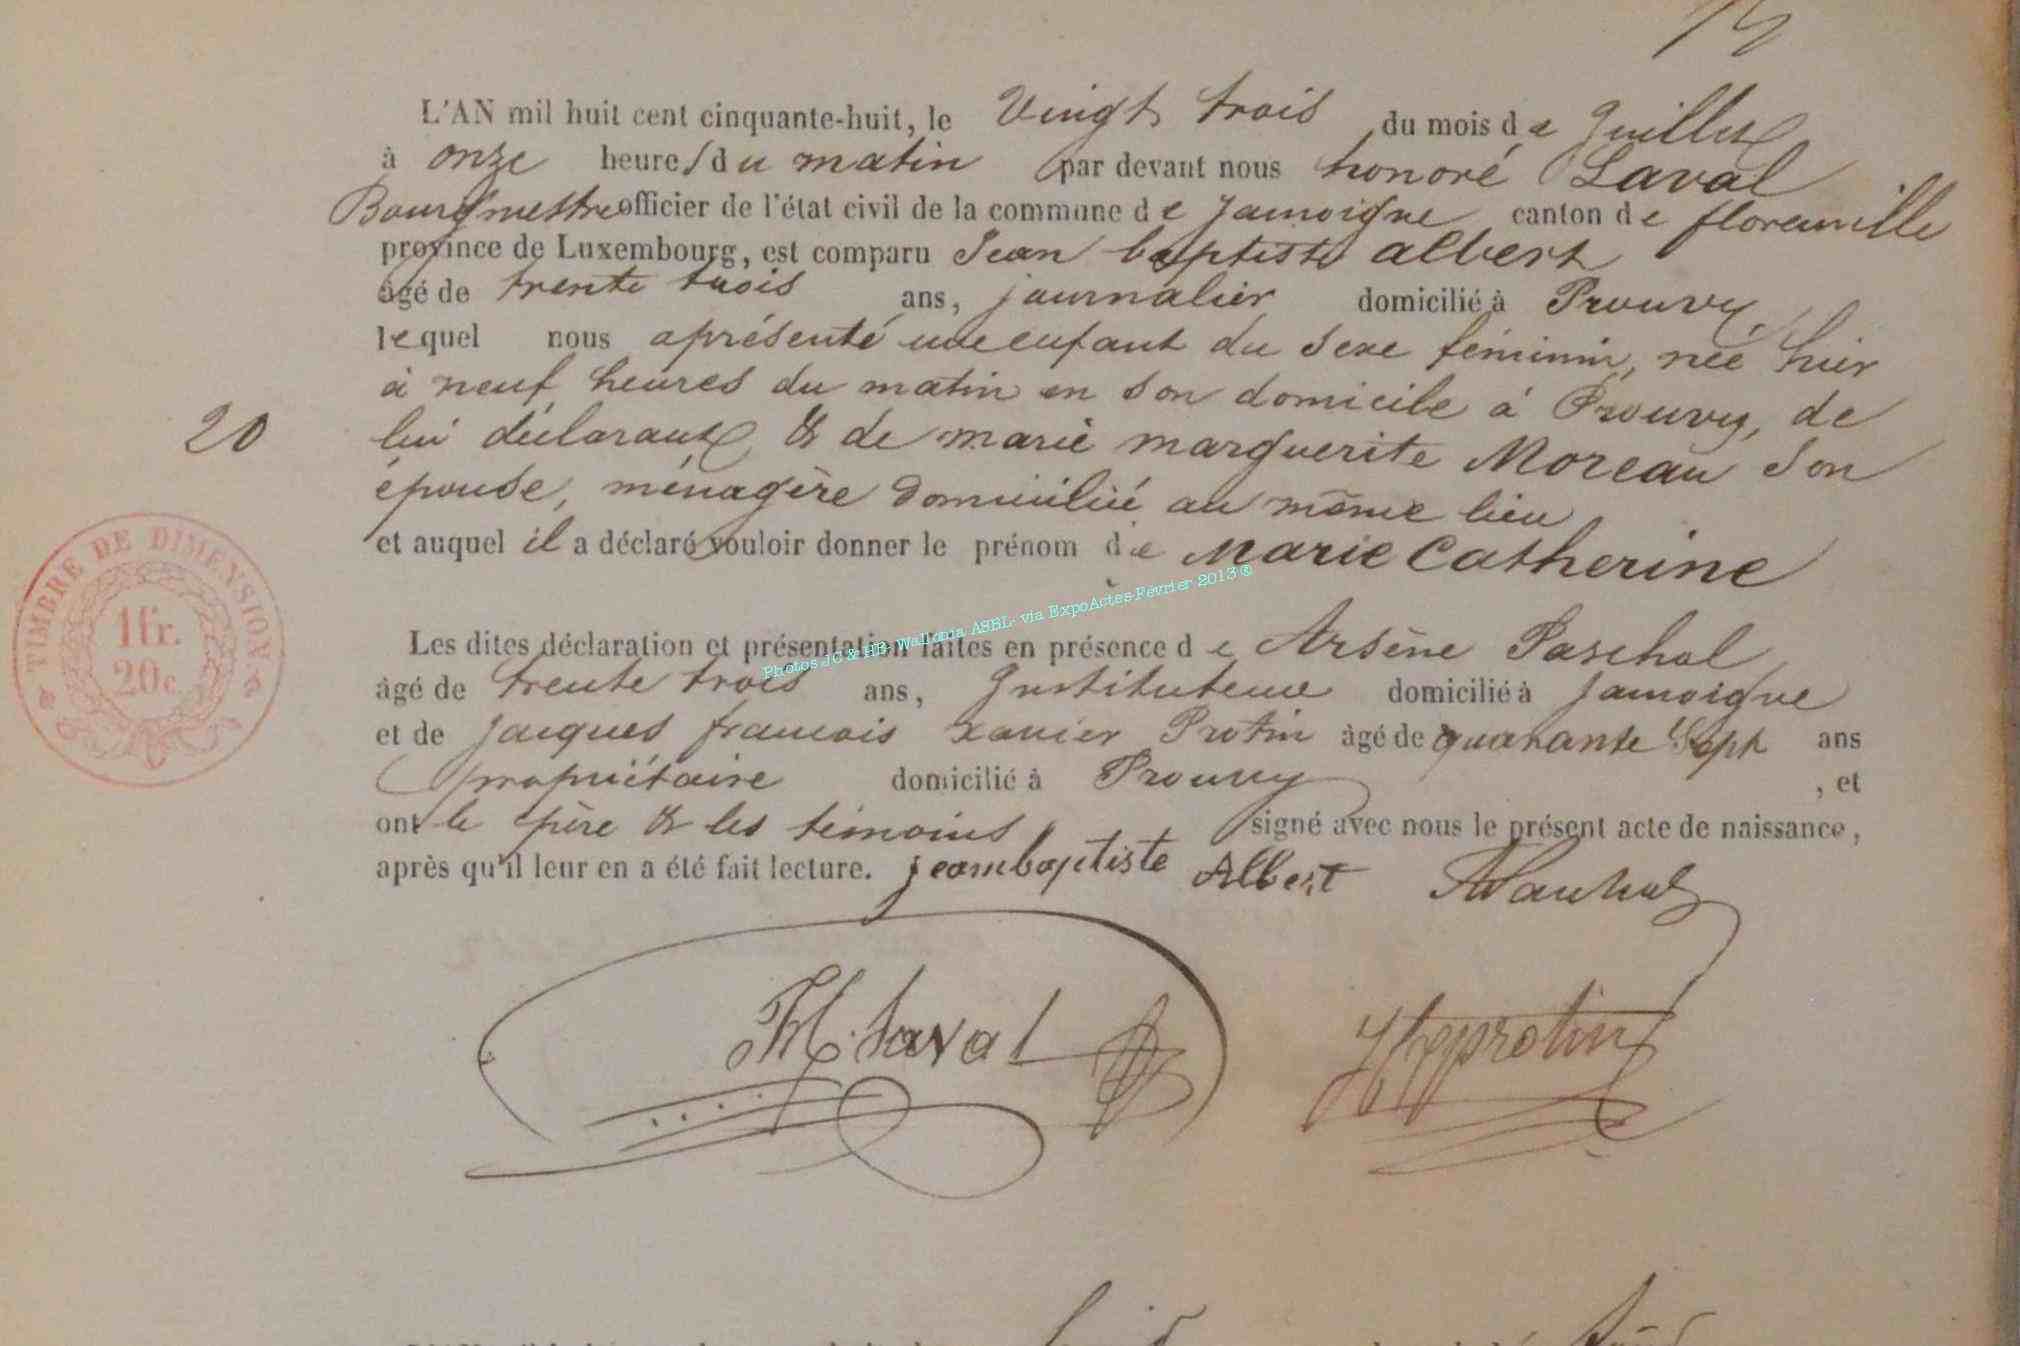 L'AN mil huit cent cinquante-huit, le Vingt trois du mois de Juillet
à onze heures du matin par devant nous honoré Laval
Bourgmestre officier de l'état civil de la commune de Jamoigne canton de florenville
province de Luxembourg, est comparu Jean baptiste albert
âgé de trente trois ans, journalier domicilié à Prouvy,
lequel nous a présenté une enfant du sexe féminin, née hier
à neuf heures du matin en son domicile à Prouvy, de
20
lui déclarant & de marie marguerite Moreau son
épouse, ménagère domiciliée au même lieu
et auquel il a déclaré vouloir donner le prénom de Marie Catherine
TIMBRE DE DIMENSION
1fr.
20c.
Photos JC & HB- Wallonia ASBL- via ExpoActes-Février 2013 ®
Les dites déclaration et présentation faites en présence de Arsène Paschal
âgé de trente trois ans, Instituteur domicilié à Jamoigne
et de jacques francois xavier Protin âgé de quarante Sept ans
propriétaire domicilié à Prouvy , et
ont le père & les témoins signé avec nous le présent acte de naissance,
après qu'il leur en a été fait lecture. jeambaptiste Albert
H. Laval
protin